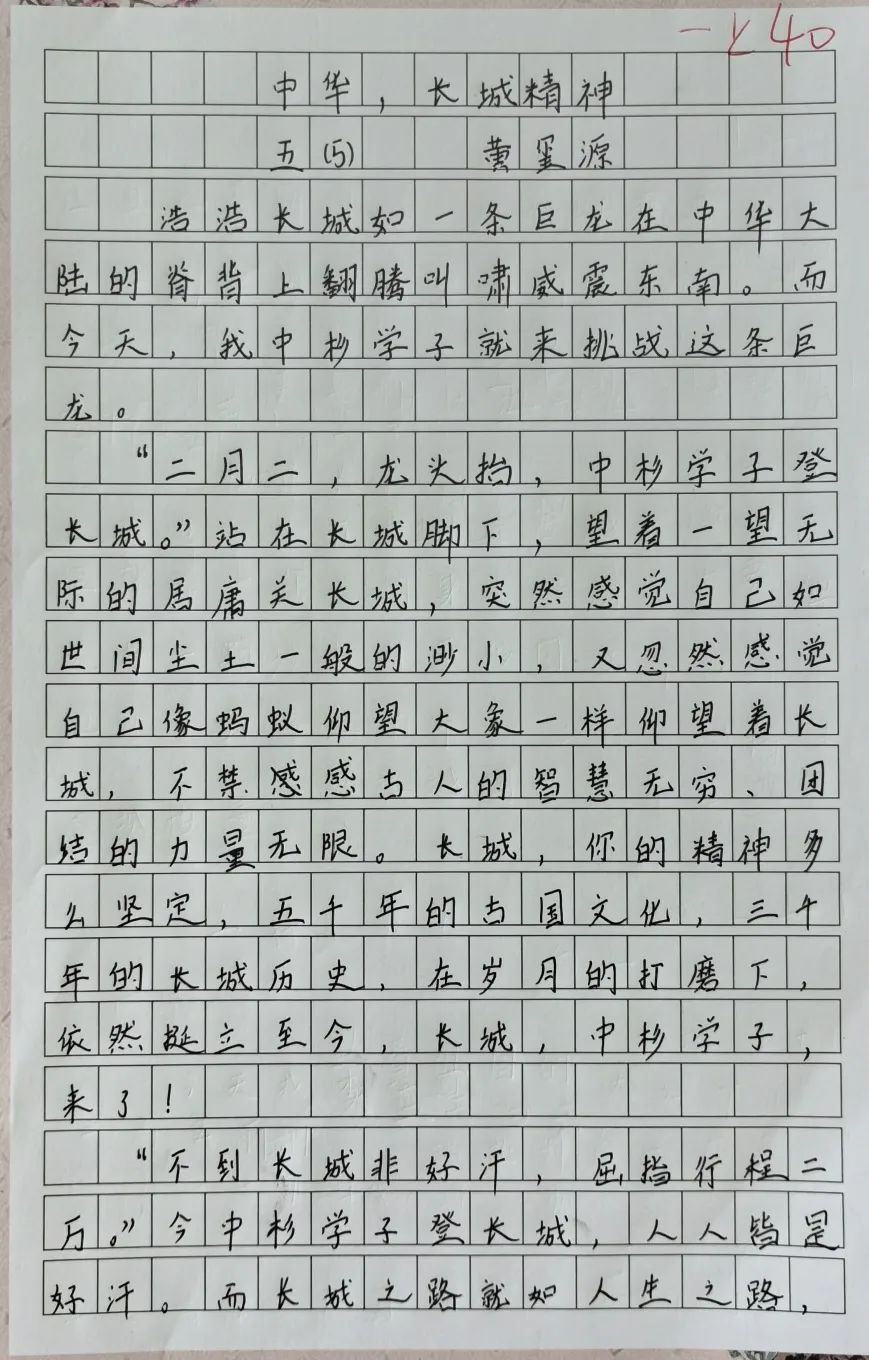 一类40
中华，长城精神
五(5) 黄玺源
浩浩长城如一条巨龙在中华大
陆的脊背上翻腾叫啸威震东南。而
今天，我中杉学子就来挑战这条巨
龙。
“二月二，龙头抬，中杉学子登
长城。”站在长城脚下，望着一望无
际的居庸关长城，突然感觉自己如
世间尘土一般的渺小，又忽然感觉
自己像蚂蚁仰望大象一样仰望着长
城，不禁感感古人的智慧无穷、团
结的力量无限。长城，你的精神多
么坚定，五千年的古国文化，三千
年的长城历史，在岁月的打磨下，
依然挺立至今，长城，中杉学子，
来了！
“不到长城非好汗，屈指行程二
万。”今中杉学子登长城，人人皆是
好汗。而长城之路就如人生之路，